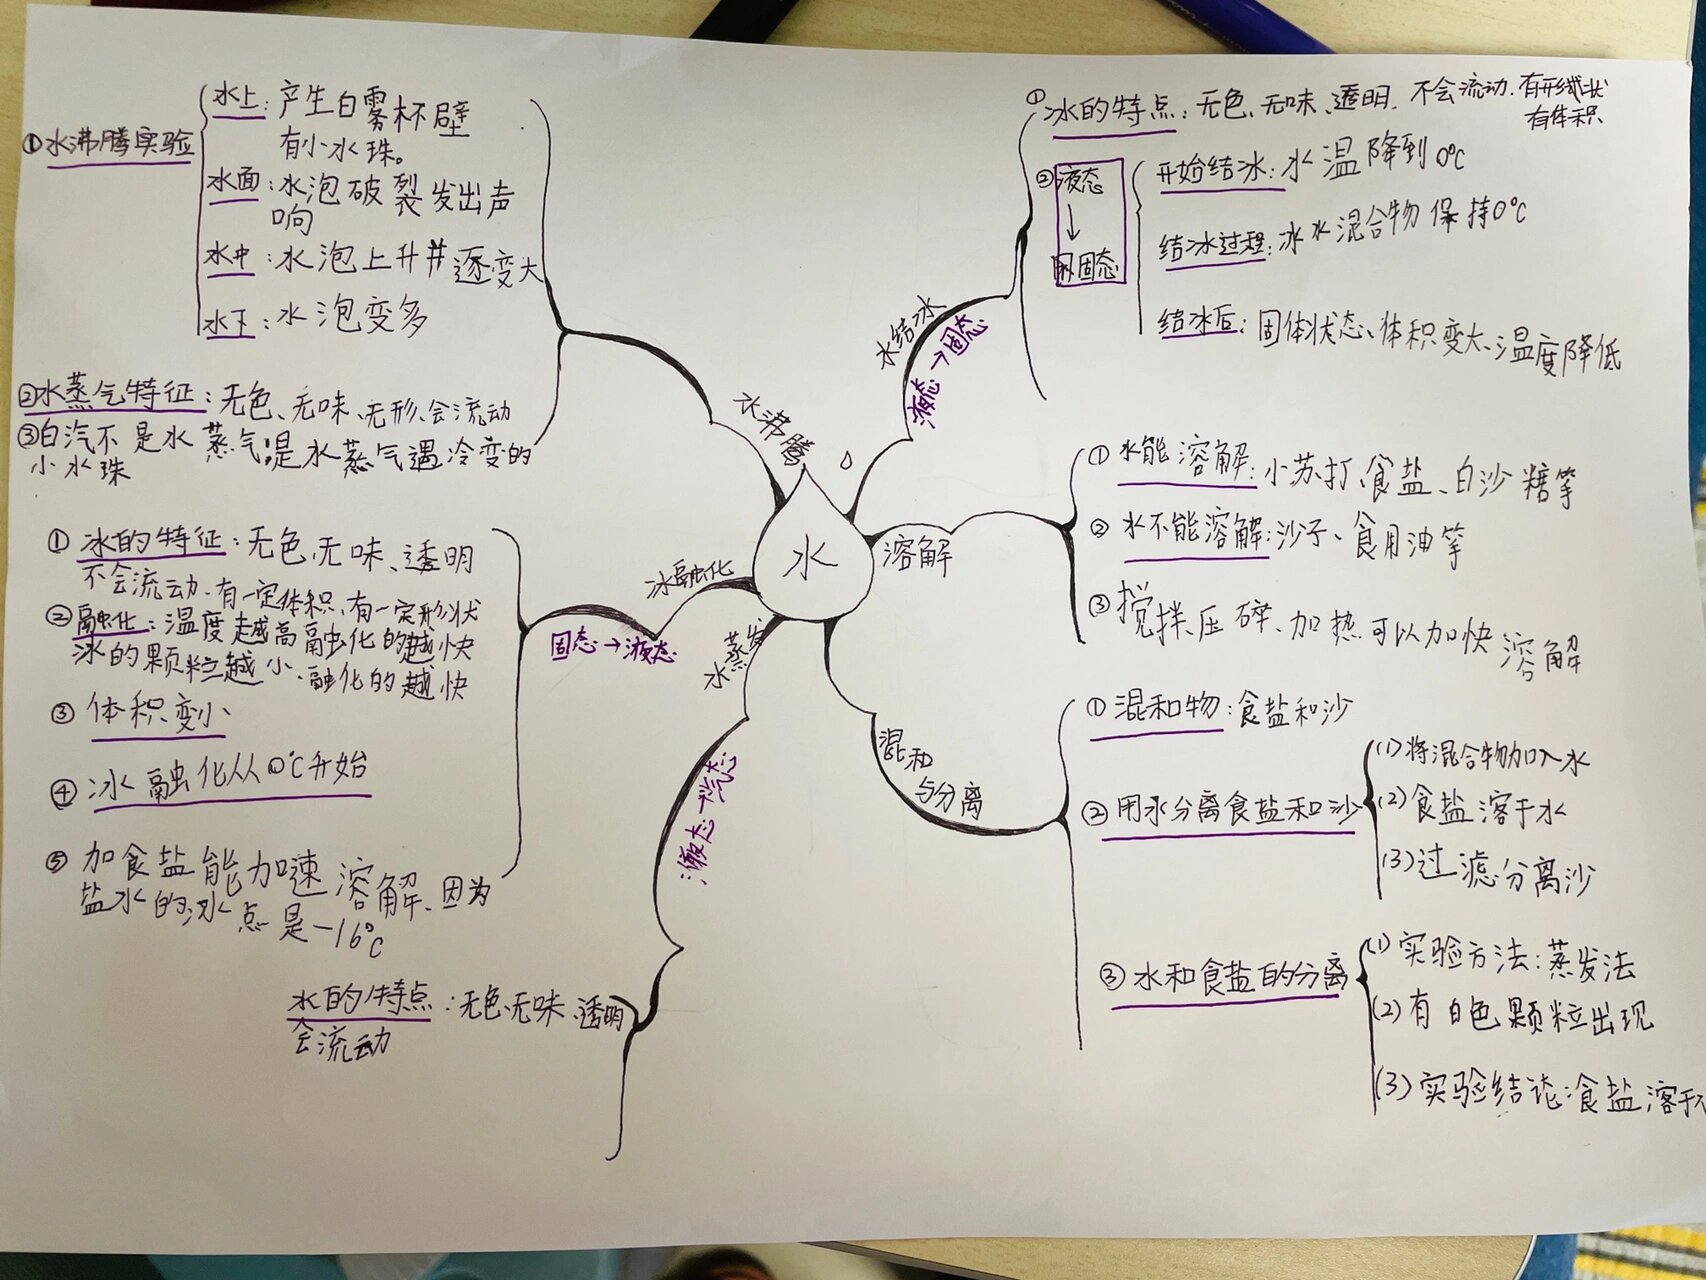 ①水沸腾实验
水上：产生白雾杯壁
有小水珠。
水面：水泡破裂发出声
响
水中：水泡上升并逐变大
水下：水泡变多
②水蒸气特征：无色、无味、无形、会流动
③白汽不是水蒸气，是水蒸气遇冷变的
小水珠
水沸腾
①冰的特征：无色、无味、透明
不会流动、有一定体积、有一定形状
②融化：温度越高融化的越快
冰的颗粒越小、融化的越快
③体积变小
④冰融化从0℃开始
⑤加食盐能加速溶解、因为
盐水的冰点是-16℃
冰融化
固态→液态
水的特点：无色、无味、透明
会流动
水蒸发
液态→汽态
水
水结冰
液态→固态
①冰的特点：无色、无味、透明、不会流动、有形状
有体积
②液态
↓
固态
开始结冰：水温降到0℃
结冰过程：冰水混合物保持0℃
结冰后：固体状态、体积变大、温度降低
溶解
①水能溶解：小苏打、食盐、白沙糖等
②水不能溶解：沙子、食用油等
③搅拌、压碎、加热可以加快溶解
混和
与分离
①混和物：食盐和沙
②用水分离食盐和沙
(1)将混合物加入水
(2)食盐溶于水
(3)过滤分离沙
③水和食盐的分离
(1)实验方法：蒸发法
(2)有白色颗粒出现
(3)实验结论：食盐溶于